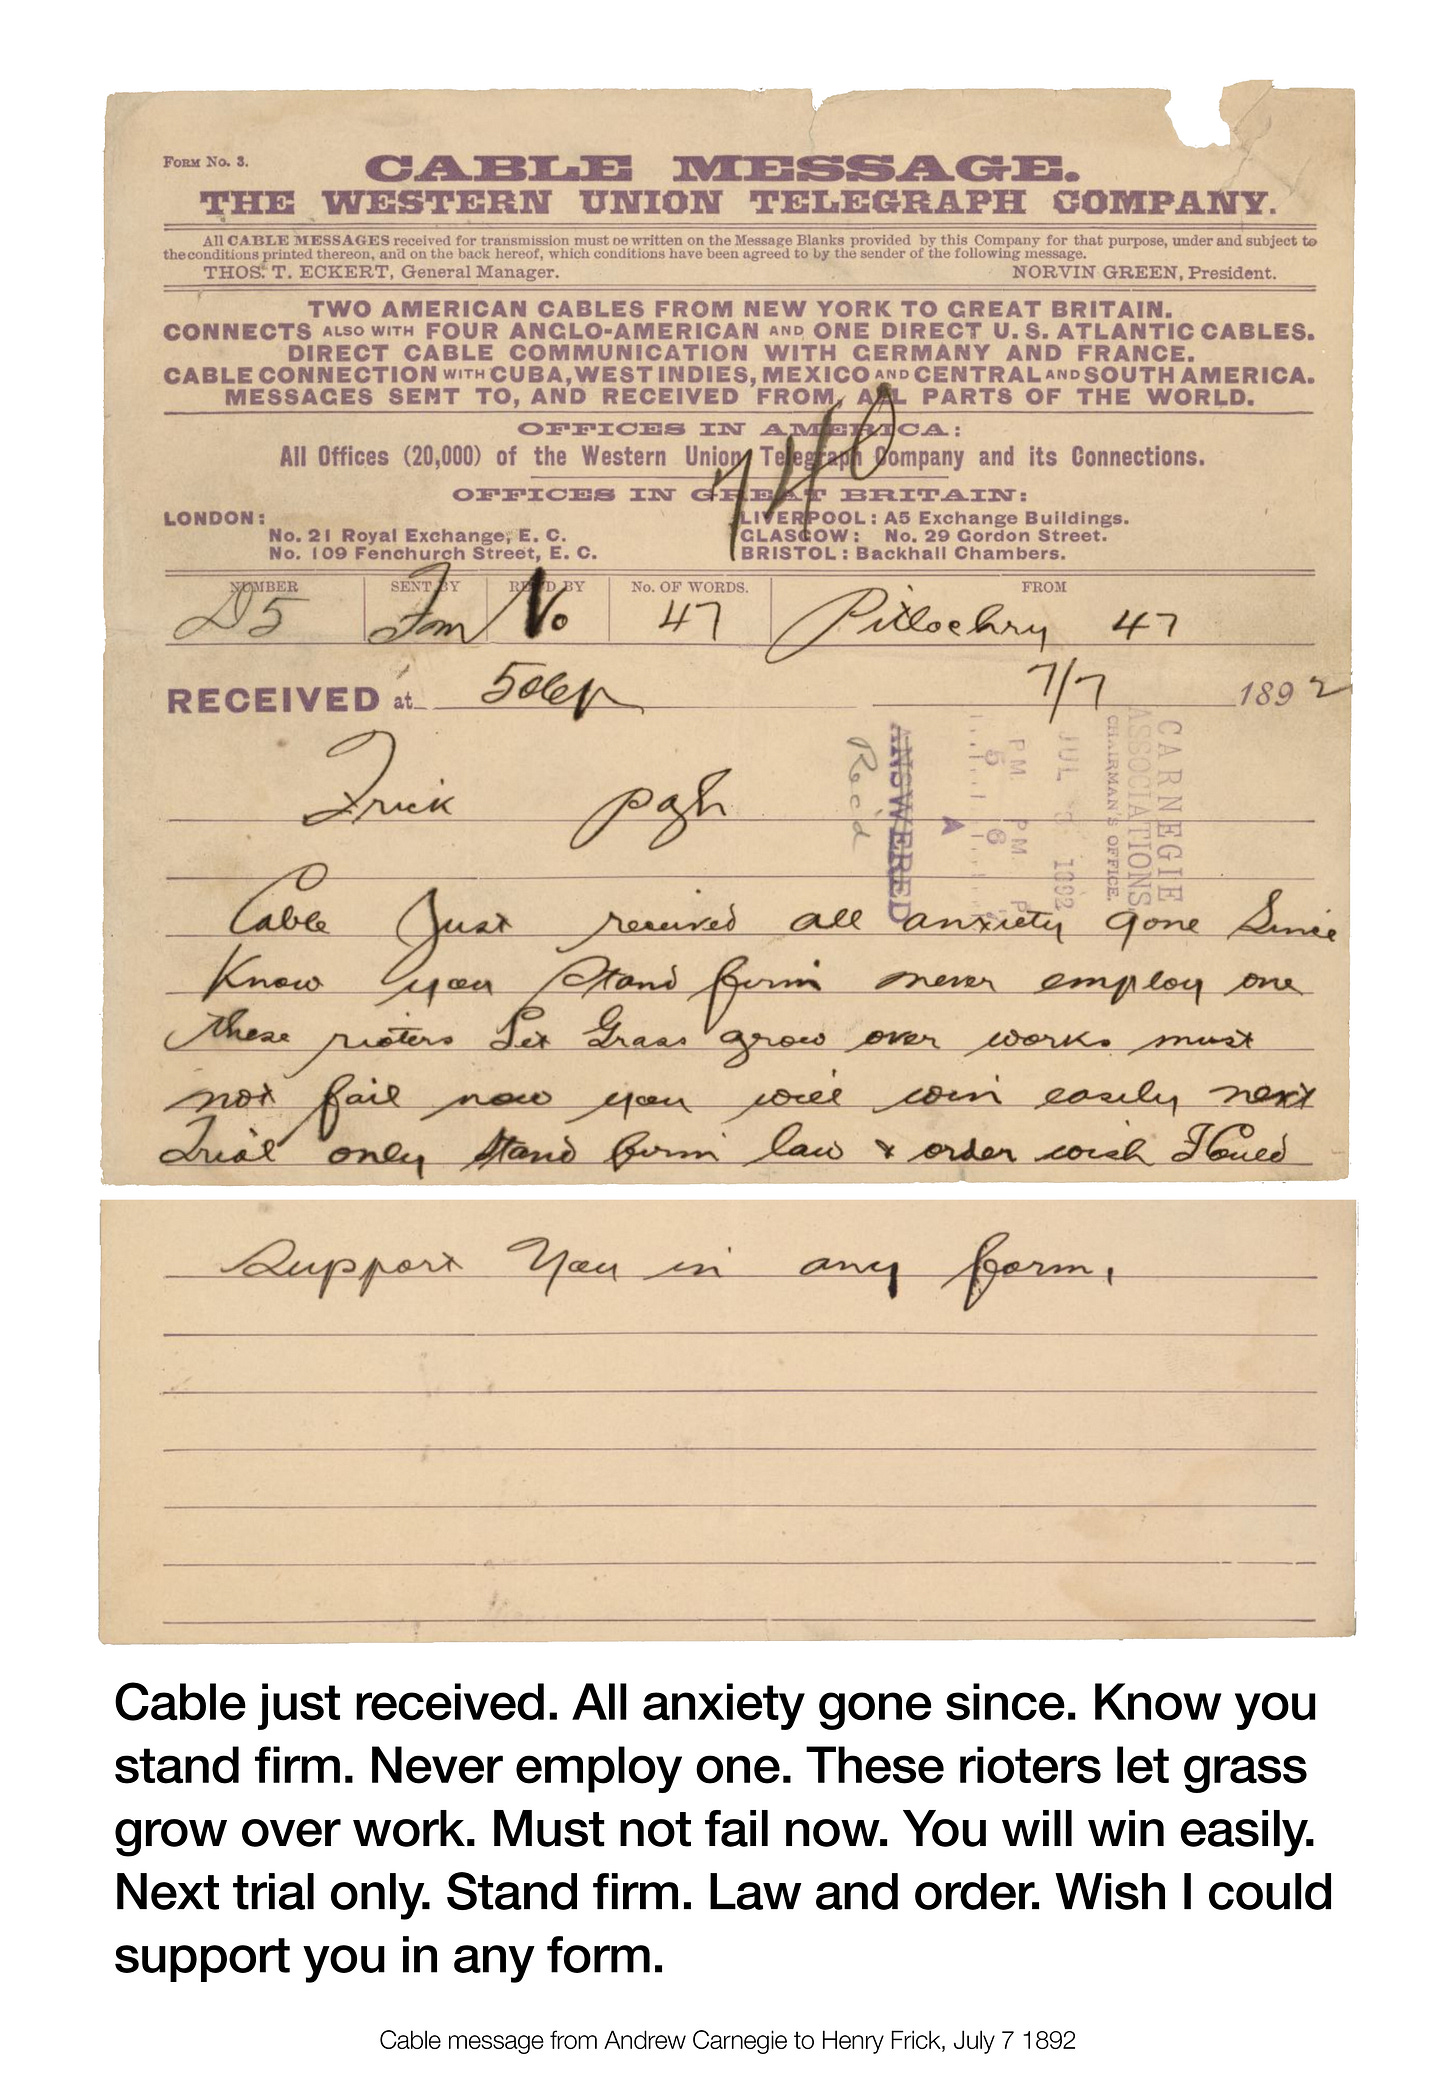 FORM No. 3.
CABLE MESSAGE.
THE WESTERN UNION TELEGRAPH COMPANY.
All CABLE MESSAGES received for transmission must be written on the Message Blanks provided by this Company for that purpose, under and subject to
the conditions printed thereon, and on the back hereof, which conditions have been agreed to by the sender of the following message.
THOS. T. ECKERT, General Manager. NORVIN GREEN, President.
TWO AMERICAN CABLES FROM NEW YORK TO GREAT BRITAIN.
CONNECTS ALSO WITH FOUR ANGLO-AMERICAN AND ONE DIRECT U. S. ATLANTIC CABLES.
DIRECT CABLE COMMUNICATION WITH GERMANY AND FRANCE.
CABLE CONNECTION WITH CUBA, WEST INDIES, MEXICO AND CENTRAL AND SOUTH AMERICA.
MESSAGES SENT TO, AND RECEIVED FROM, ALL PARTS OF THE WORLD.
OFFICES IN AMERICA:
All Offices (20,000) of the Western Union Telegraph Company and its Connections.
740
OFFICES IN GREAT BRITAIN:
LONDON: LIVERPOOL: A5 Exchange Buildings.
No. 21 Royal Exchange, E. C. GLASGOW: No. 29 Gordon Street.
No. 109 Fenchurch Street, E. C. BRISTOL: Backhall Chambers.
NUMBER SENT BY REC'D BY No. OF WORDS. FROM
D5 No 47 Pitlochry 47
RECEIVED at 506p 7/7 1892
CARNEGIE
ASSOCIATIONS
CHAIRMAN'S OFFICE.
JUL 1892
PM. PM.
5 6
ANSWERED
Rec'd
Frick pgh
Cable Just received all anxiety gone Since
Know you Stand firm never employ one
these rioters Let Grass grow over works must
not fail now you will win easily next
Trial only stand firm law & order wish I Could
Support You in any form,
Cable just received. All anxiety gone since. Know you
stand firm. Never employ one. These rioters let grass
grow over work. Must not fail now. You will win easily.
Next trial only. Stand firm. Law and order. Wish I could
support you in any form.
Cable message from Andrew Carnegie to Henry Frick, July 7 1892